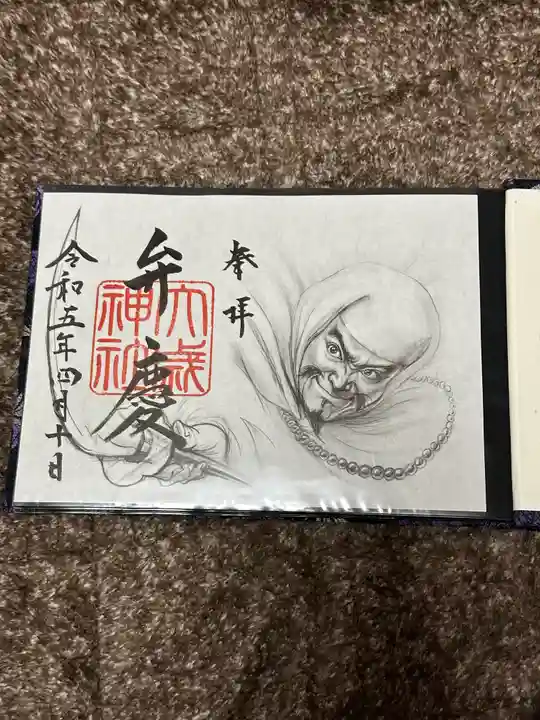 奉拝
弁慶
大歳
神社
令和五年四月十日